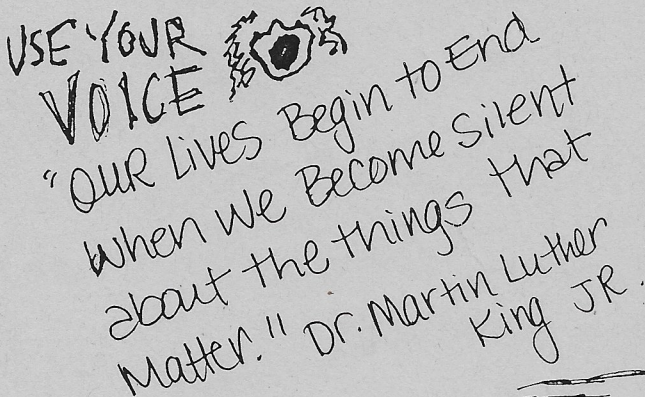 USE YOUR
VOICE
"OUR Lives Begin to End
when we Become Silent
about the things that
Matter." Dr. Martin Luther
King JR.